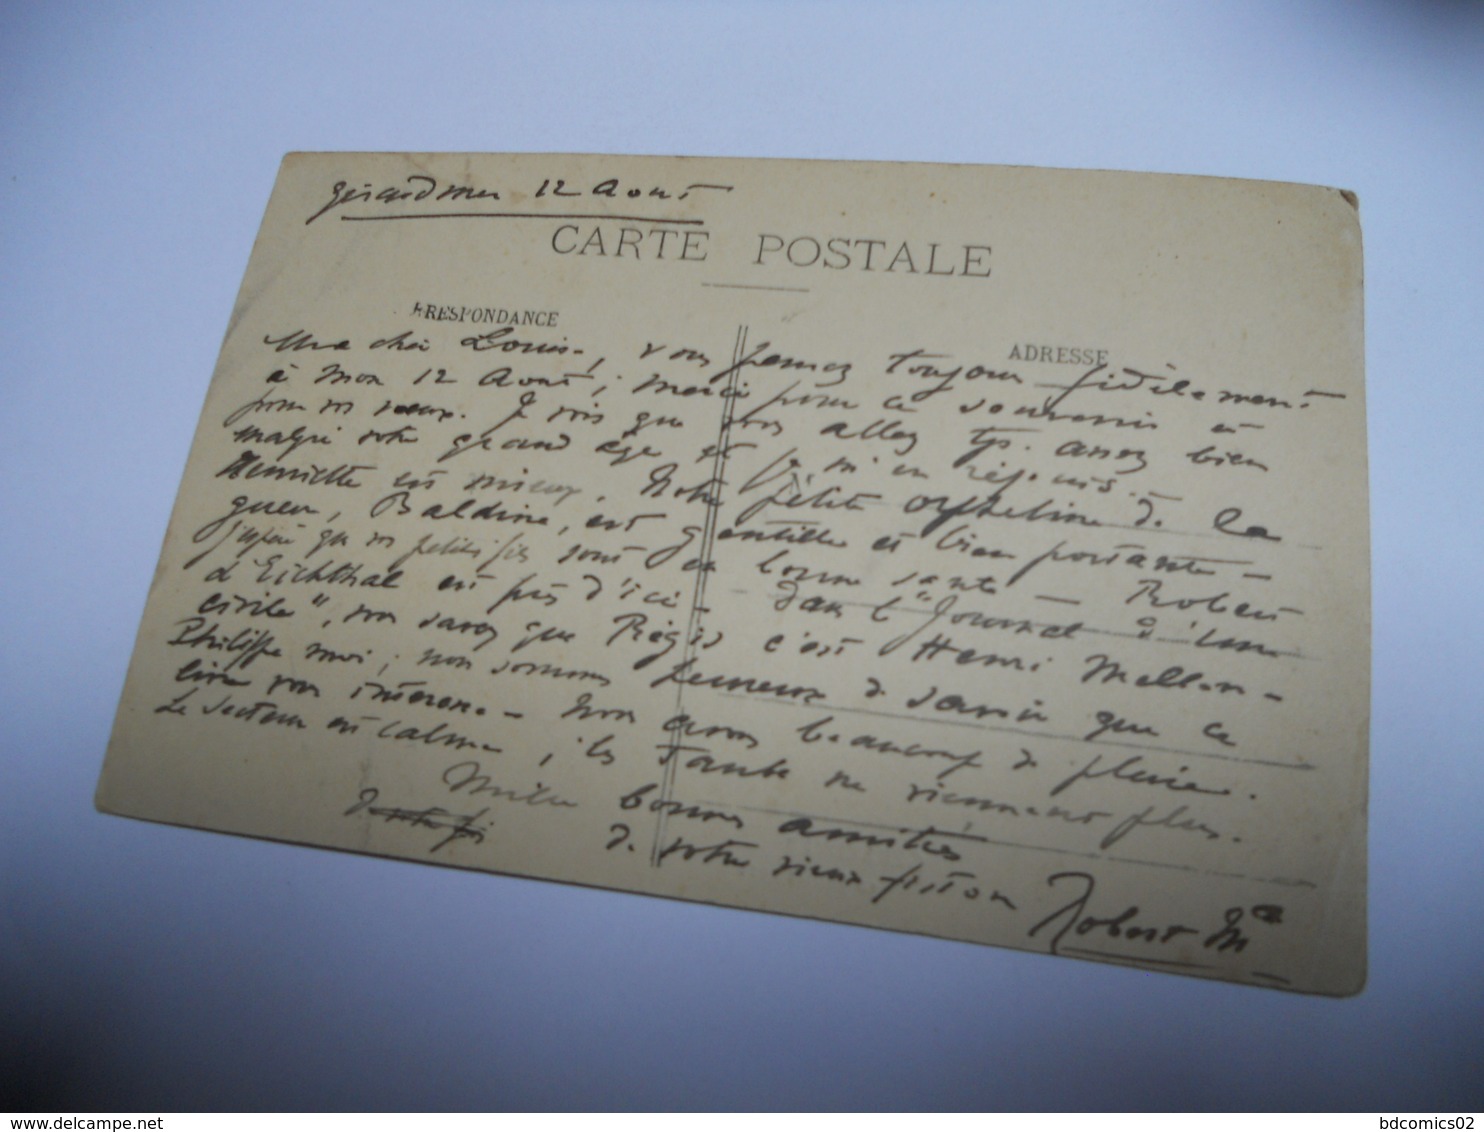 Gérardmer 12 Aout
CARTE POSTALE
RRESPONDANCE
ADRESSE
Ma chère Louise, vous pensez toujours fidèlement
à mon 12 Aout ; merci pour ce souvenir et
pour vos voeux. Je vois que vous allez tjs. assez bien
malgré votre grand âge et je m'en réjouis.
Henriette est mieux. Notre petite orpheline de la
guerre, Baldine, est gentille et bien portante –
J'espère que vos petits fils sont en bonne santé – Robert
d'Eichthal est près d'ici – Dans l'"Journal d'un
civile", vous savez que Régis c'est Henri Mellon –
Philippe moi ; nous sommes heureux de savoir que ce
livre vous intéresse. – Nous avons beaucoup de pluie.
Le secteur est calme ; les Taube ne viennent plus.
Mille bonnes amitiés
de votre vieux fiston
Robert M
www.delcampe.net
bdcomics02